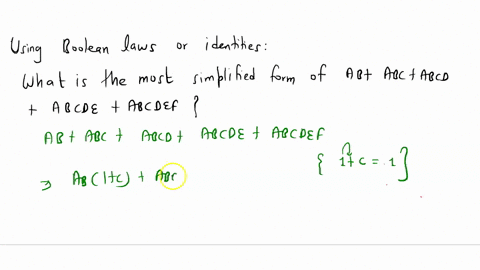 Using Boolean laws or identities:
What is the most simplified form of AB+ ABC+ABCD
+ ABCDE + ABCDEF {
AB+ ABC + ABCD+ ABCDE+ ABCDEF
⇒ AB(1+C) + ABC { 1+C = 1 }